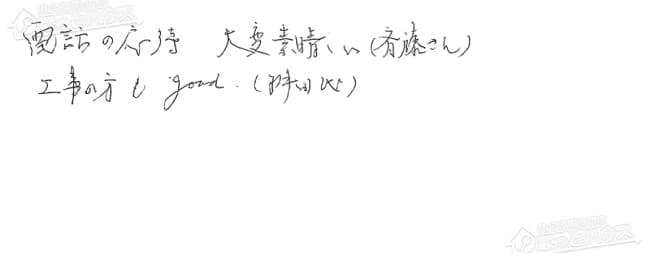 電話の応待 大変素晴しい(斉藤さん)
工事の方も good.(野田氏)